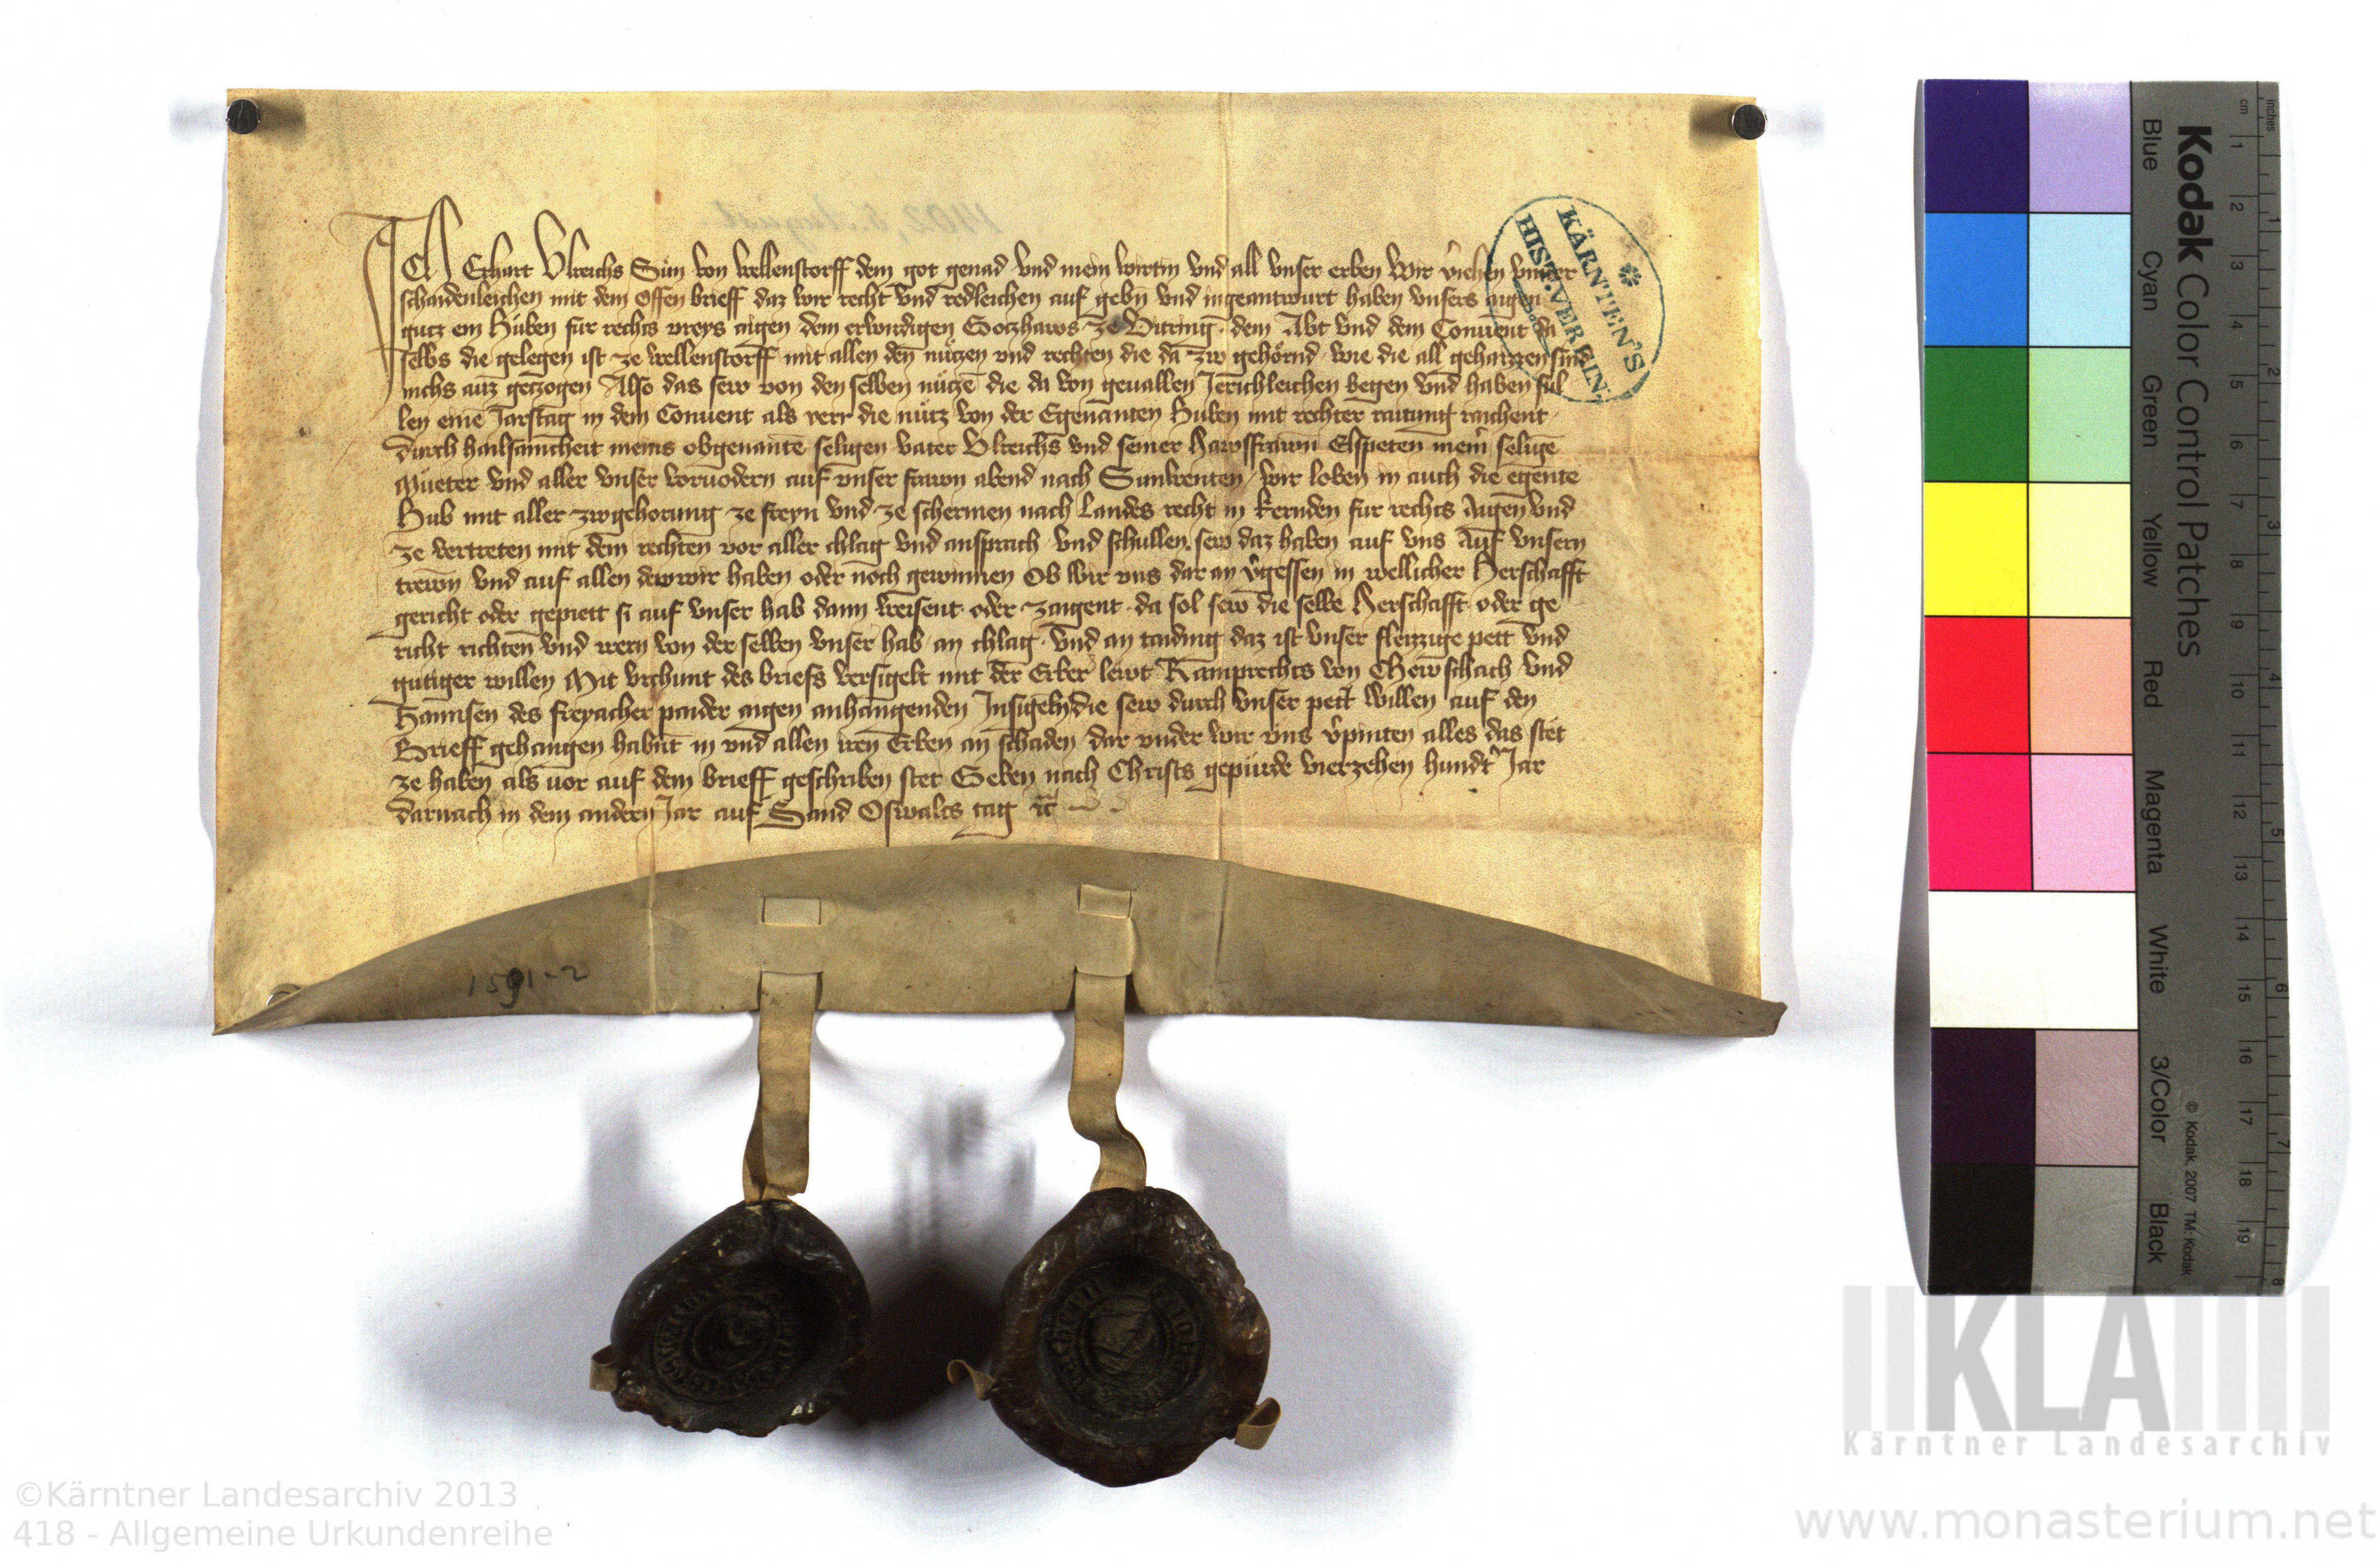 Ich Erhart Vlreichs Sün von Wellenstorff dem got genad vnd mein wirtin vnd all vnser erben Wir v̂iehen vnuer
schaidenleichen mit dem Offen brieff daz wir recht vnd redleichen auf gebn̄ vnd ingeantwurt haben vnsers aigen
gutz ein Hůben für rechts vreys aigen dem erwirdigen Gotzhaws ze Vitring dem Abt vnd dem Conuent da
selbs die gelegen ist ze Wellenstorff mit allen den nützen vnd rechten die da zw gehörnd wie die all gehaizzen sind
nichs auz getzogen Also das sew von den selben nütze die da von geuallen Jerichleichen begen vnd haben sul
len eine Jarstag in dem Conuent als verr die nütz von der Egenanten Hůben mit rechter raitung raichent
durch hailsamcheit meins obgenante seligen vater Vlreichs vnd seiner Hawsfrawn Elspeten mein̂ selige
Mueter vnd aller vnser voruodern auf vnser frawn abend nach Sunbenten wir loben in auch die egente
Hub mit aller zwgehorung ze freyn vnd ze schermen nach Landes recht in kernden für rechts Aigen vnd
ze vertreten mit dem rechten vor aller chlag vnd ansprach vnd schullen sew daz haben auf vns Auf vnsern
trewn vnd auf allen dew wir haben oder noch gewinnen Ob wir vns dar an v̂gessen in wellicher Herschafft
gericht oder gepiett si auf vnser hab dann weisent oder zaigent da sol sew die selbe Herschafft oder ge
richt richten vnd wern von der selben vnser hab an chlag vnd an taiding daz ist vnser fleizzige pett vnd
gutiger willen Mit vrchunt des briefs versigelt mit der Erber lewt Ramprechts von Chewschach vnd
Hannsen des freyacher paider aigen anhangenden Insigeln die sew durch vnser pett willen auf den
Brieff gehangen habnt in vnd allen iren Erben an schaden dar vnder wir vns v̂pinten alles das stet
ze haben als uor auf dem brieff geschriben stet Geben nach Christs gepurde vierzehen hundt̂ Jar
darnach in dem andern Jar auf Sand Oswalts tag ꝛc̄
KÄRNTEN'S
HIST. VEREIN.
1402, 5. August.
1591-2
Kodak Color Control Patches
Blue Cyan Green Yellow Red Magenta White 3/Color Black
© Kodak, 2007 TM: Kodak
cm 1 2 3 4 5 6 7 8 9 10 11 12 13 14 15 16 17 18 19
inches 1 2 3 4 5 6 7 8
KLA
Kärntner Landesarchiv
©Kärntner Landesarchiv 2013
418 - Allgemeine Urkundenreihe
www.monasterium.net